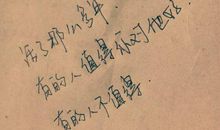 活了那么多年.
有的人值得你对他好
有的人不值得.